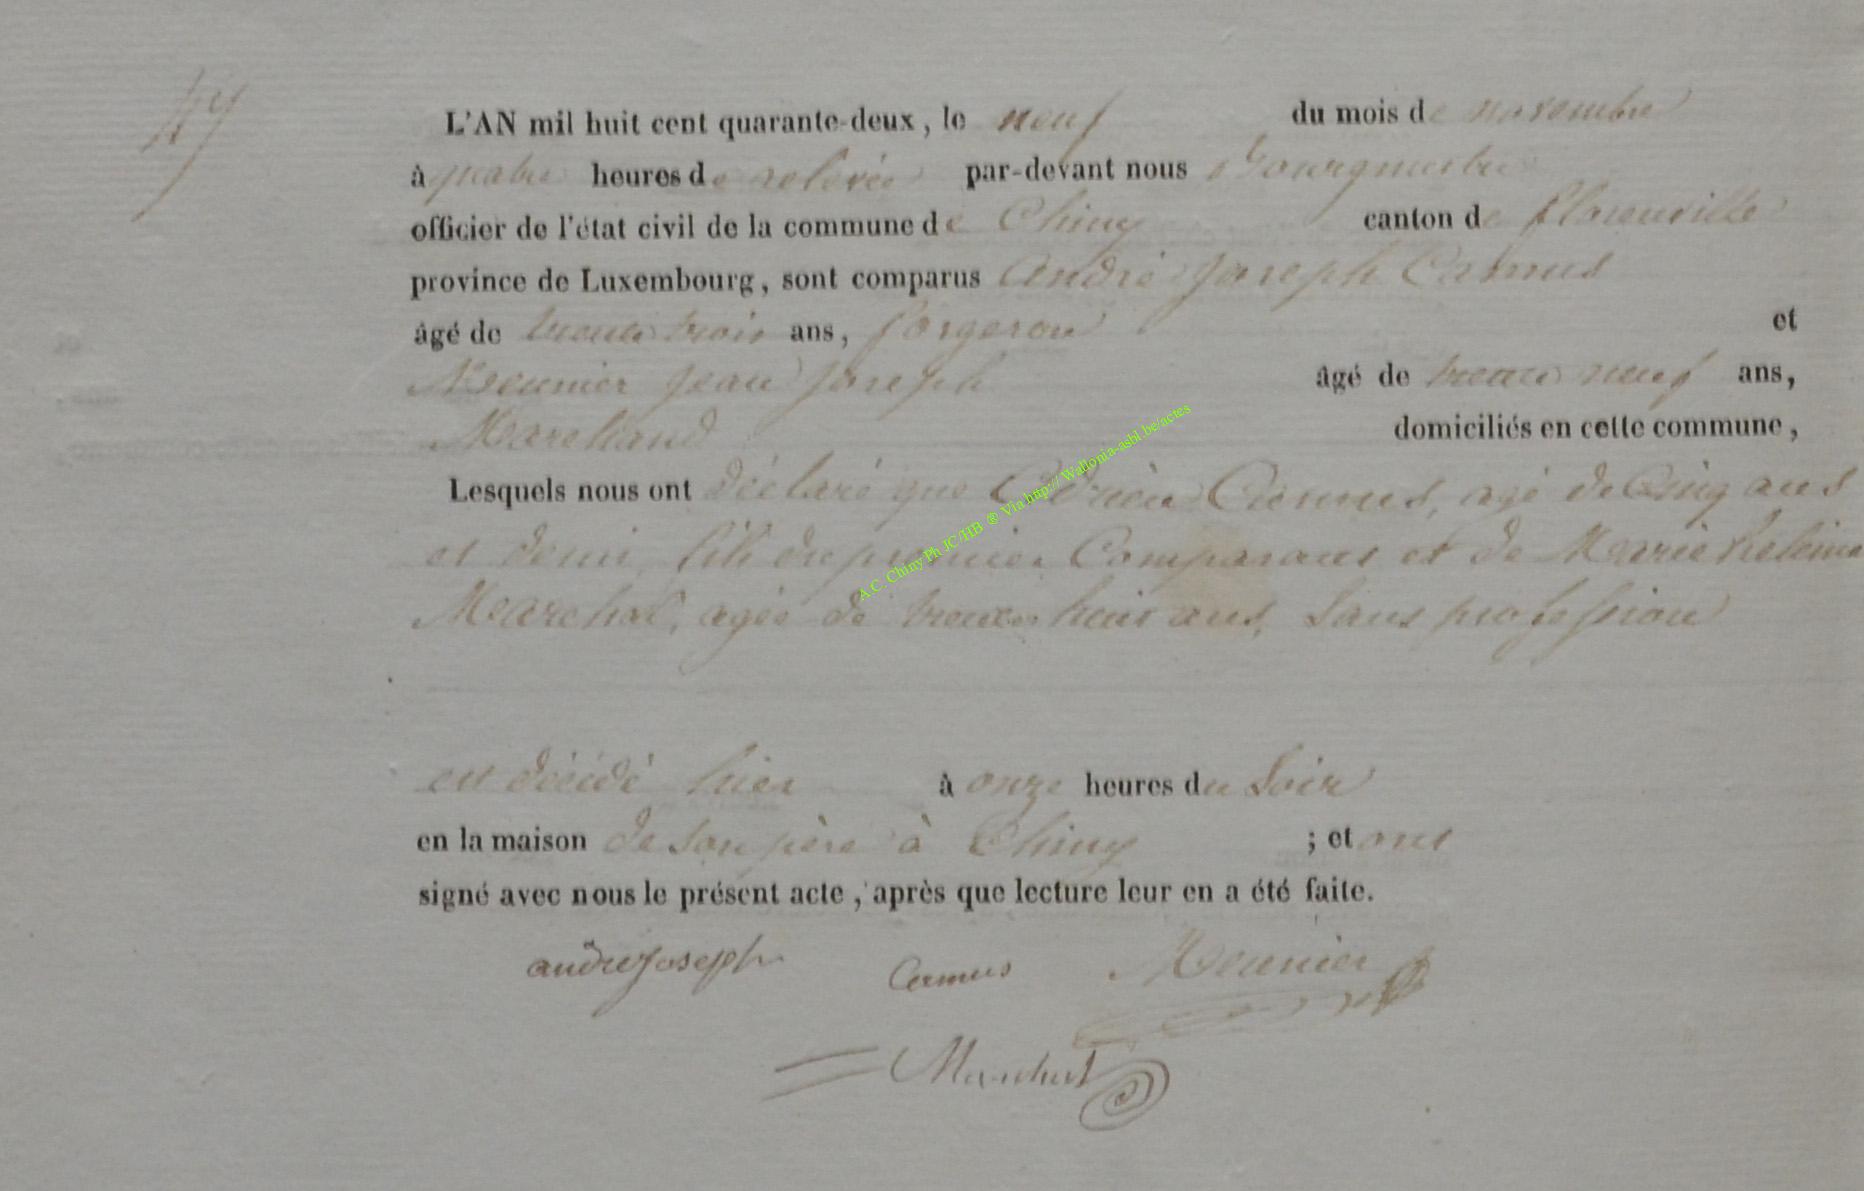 47
L'AN mil huit cent quarante-deux, le neuf du mois de novembre
à quatre heures de relevée par-devant nous Bourgmestre
officier de l'état civil de la commune de Chiny canton de florenville
province de Luxembourg, sont comparus André Joseph Camus
âgé de trente trois ans, forgeron et
Meunier Jean Joseph âgé de trente neuf ans,
Marchand domiciliés en cette commune,
Lesquels nous ont déclaré que Adrien Camus, agé de Cinq ans
et demi, fils du premier Comparant et de Marie
Marchal, agée de trente huit ans, Sans profession
est décédé hier à onze heures du Soir
en la maison de Son père à Chiny ; et ont
signé avec nous le présent acte, après que lecture leur en a été faite.
andre Joseph Camus Meunier
Marchal
A.C. Chiny Ph JC/HB ® Via http:// Wallonia-asbl.be/actes